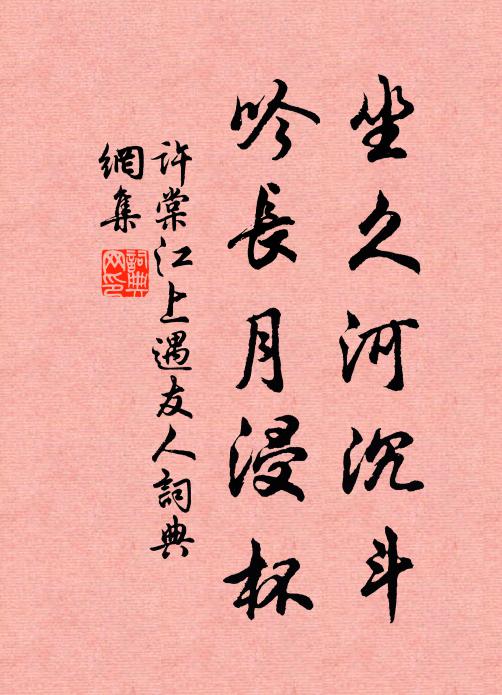 坐久河沉斗
吟長月浸杯
許棠江上遇友人詞典
網集
詞典网印